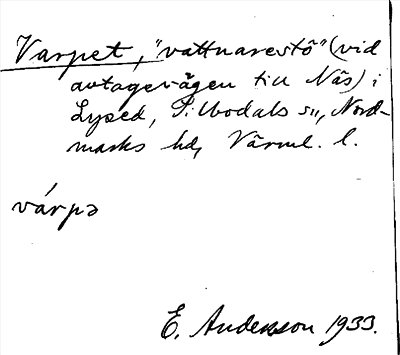 Varpet, "vattuarestö" (vid
avtagervägen till Näs) i
Lysed, Silbodals sn, Nord-
marks hd, Värml. l.
várpə
E. Anderson 1933.